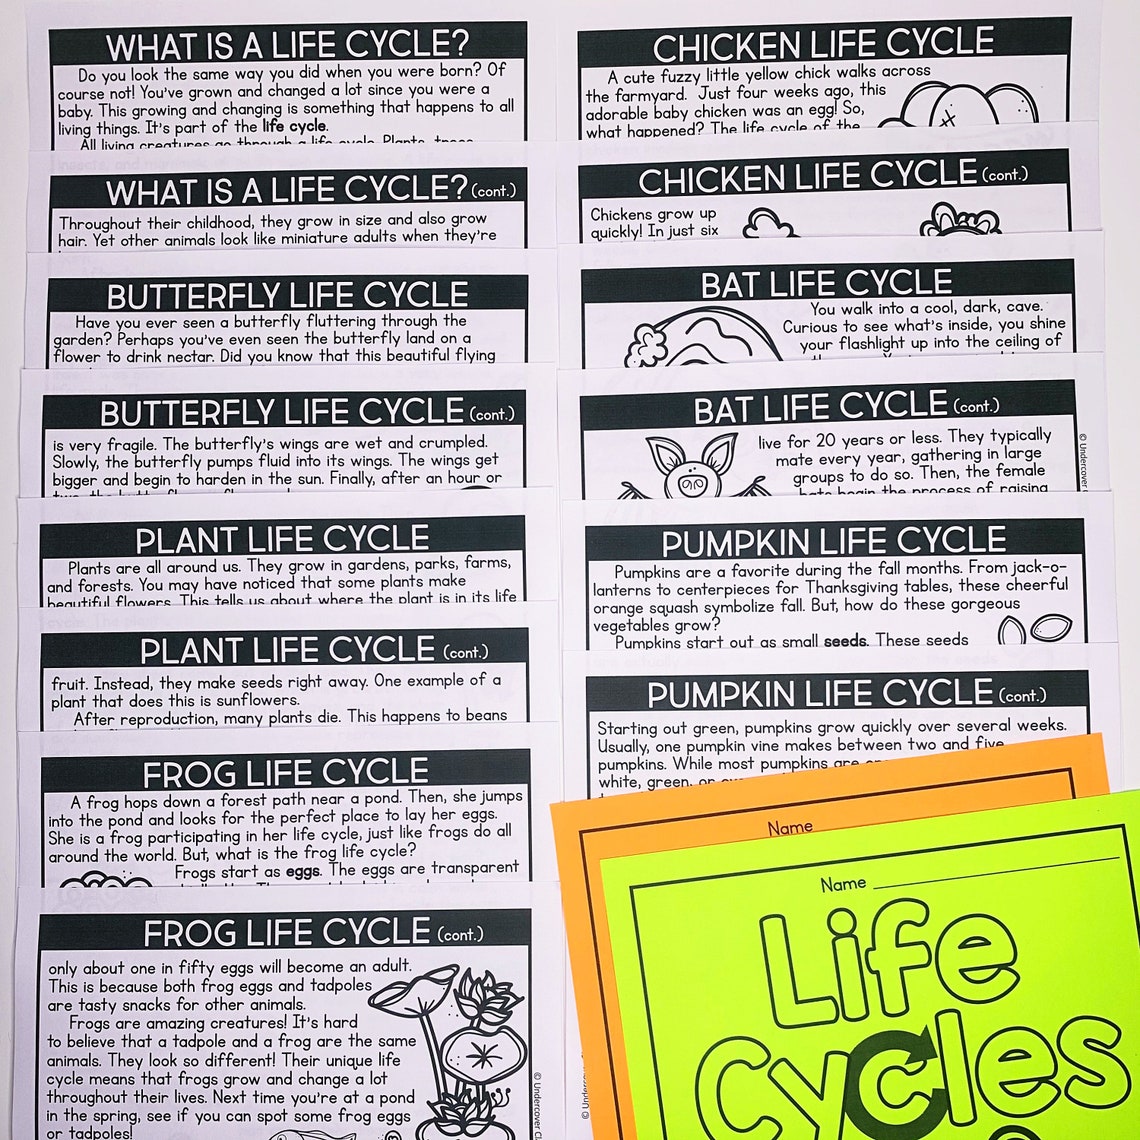 WHAT IS A LIFE CYCLE?
Do you look the same way you did when you were born? Of
course not! You've grown and changed a lot since you were a
baby. This growing and changing is something that happens to all
living things. It's part of the life cycle.
All living creatures go through a life cycle. Plants, trees,
WHAT IS A LIFE CYCLE? (cont.)
Throughout their childhood, they grow in size and also grow
hair. Yet other animals look like miniature adults when they're
BUTTERFLY LIFE CYCLE
Have you ever seen a butterfly fluttering through the
garden? Perhaps you've even seen the butterfly land on a
flower to drink nectar. Did you know that this beautiful flying
BUTTERFLY LIFE CYCLE (cont.)
is very fragile. The butterfly's wings are wet and crumpled.
Slowly, the butterfly pumps fluid into its wings. The wings get
bigger and begin to harden in the sun. Finally, after an hour or
PLANT LIFE CYCLE
Plants are all around us. They grow in gardens, parks, farms,
and forests. You may have noticed that some plants make
beautiful flowers. This tells us about where the plant is in its life
PLANT LIFE CYCLE (cont.)
fruit. Instead, they make seeds right away. One example of a
plant that does this is sunflowers.
After reproduction, many plants die. This happens to beans
FROG LIFE CYCLE
A frog hops down a forest path near a pond. Then, she jumps
into the pond and looks for the perfect place to lay her eggs.
She is a frog participating in her life cycle, just like frogs do all
around the world. But, what is the frog life cycle?
Frogs start as eggs. The eggs are transparent
FROG LIFE CYCLE (cont.)
only about one in fifty eggs will become an adult.
This is because both frog eggs and tadpoles
are tasty snacks for other animals.
Frogs are amazing creatures! It's hard
to believe that a tadpole and a frog are the same
animals. They look so different! Their unique life
cycle means that frogs grow and change a lot
throughout their lives. Next time you're at a pond
in the spring, see if you can spot some frog eggs
or tadpoles!
© Undercover Cl
CHICKEN LIFE CYCLE
A cute fuzzy little yellow chick walks across
the farmyard. Just four weeks ago, this
adorable baby chicken was an egg! So,
what happened? The life cycle of the
CHICKEN LIFE CYCLE (cont.)
Chickens grow up
quickly! In just six
BAT LIFE CYCLE
You walk into a cool, dark, cave.
Curious to see what's inside, you shine
your flashlight up into the ceiling of
BAT LIFE CYCLE (cont.)
live for 20 years or less. They typically
mate every year, gathering in large
groups to do so. Then, the female
bats begin the process of raising
© Undercover C
PUMPKIN LIFE CYCLE
Pumpkins are a favorite during the fall months. From jack-o-
lanterns to centerpieces for Thanksgiving tables, these cheerful
orange squash symbolize fall. But, how do these gorgeous
vegetables grow?
Pumpkins start out as small seeds. These seeds
PUMPKIN LIFE CYCLE (cont.)
Starting out green, pumpkins grow quickly over several weeks.
Usually, one pumpkin vine makes between two and five
pumpkins. While most pumpkins are
white, green, or
Name
© Undercover
Name
Life
Cycles